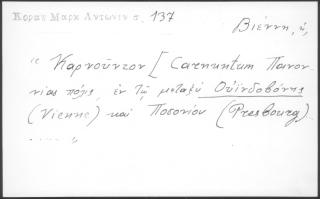 Κοραῆ Μαρκ Αντωνιν σ. 137
Βιέννη, ἡ,
“ Καρνοῦντον [Carnuntum Πανον-
νίας πόλις, ἐν τῷ μεταξὺ Οὐϊνδοβόνης
(Vienne) καὶ Ποσονίου (Presbourg)
..... „